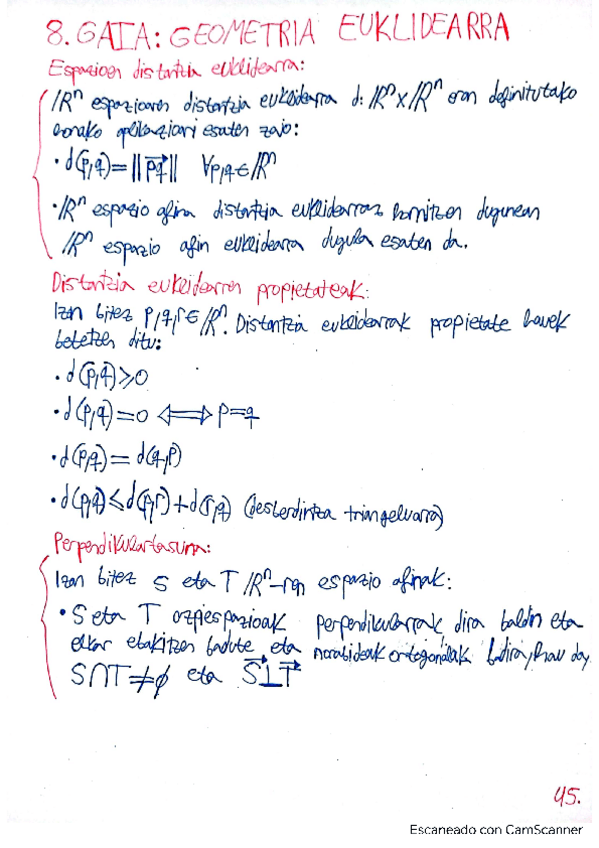 8. GAIA: GEOMETRIA EUKLIDEARRA
Espazioen distantzia euklidearra:
ℝⁿ espazioaren distantzia euklidearra d: ℝⁿ×ℝⁿ eran definitutako
honako aplikazioari esaten zaio:
· d(p,q)=||p͞q⃗|| ∀p,q∈ℝⁿ
· ℝⁿ espazio afina distantzia euklidearraz hornitzen dugunean
ℝⁿ espazio afin euklidearra dugula esaten da.
Distantzia euklidearren propietateak:
Izan bitez p,q,r∈ℝⁿ. Distantzia euklidearrak propietate hauek
betetzen ditu:
· d(p,q)≥0
· d(p,q)=0 ⟺ p=q
· d(p,q)=d(q,p)
· d(p,q)≤d(p,r)+d(r,q) (desberdintza triangeluarra)
Perpendikulartasuna:
Izan bitez S eta T ℝⁿ-ren espazio afinak:
· S eta T azpiespazioak perpendikularrak dira baldin eta
elkar ebakitzen badute, eta norabideak ortogonalak badira, hau da,
S∩T≠∅ eta S⃗⊥T⃗
45.
Escaneado con CamScanner